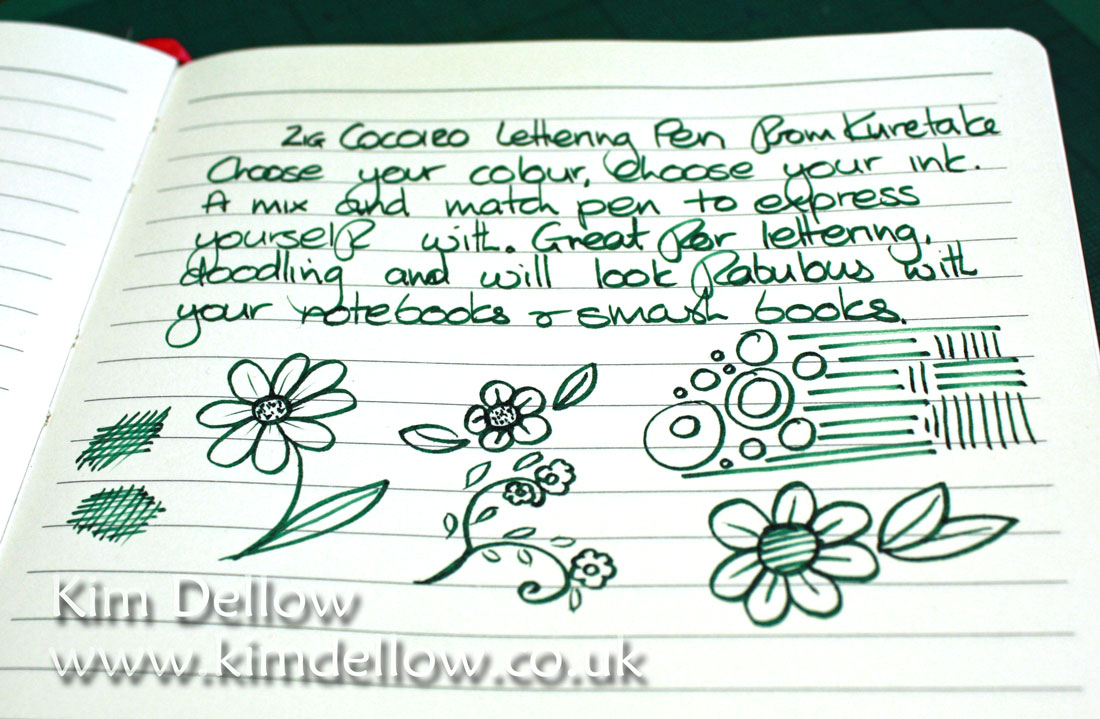 ZIG Cocoiro Lettering Pen From Kuretake
Choose your colour, choose your ink.
A mix and match pen to express
yourself with. Great for lettering,
doodling and will look fabulous with
your notebooks & smash books.
Kim Dellow
www.kimdellow.co.uk